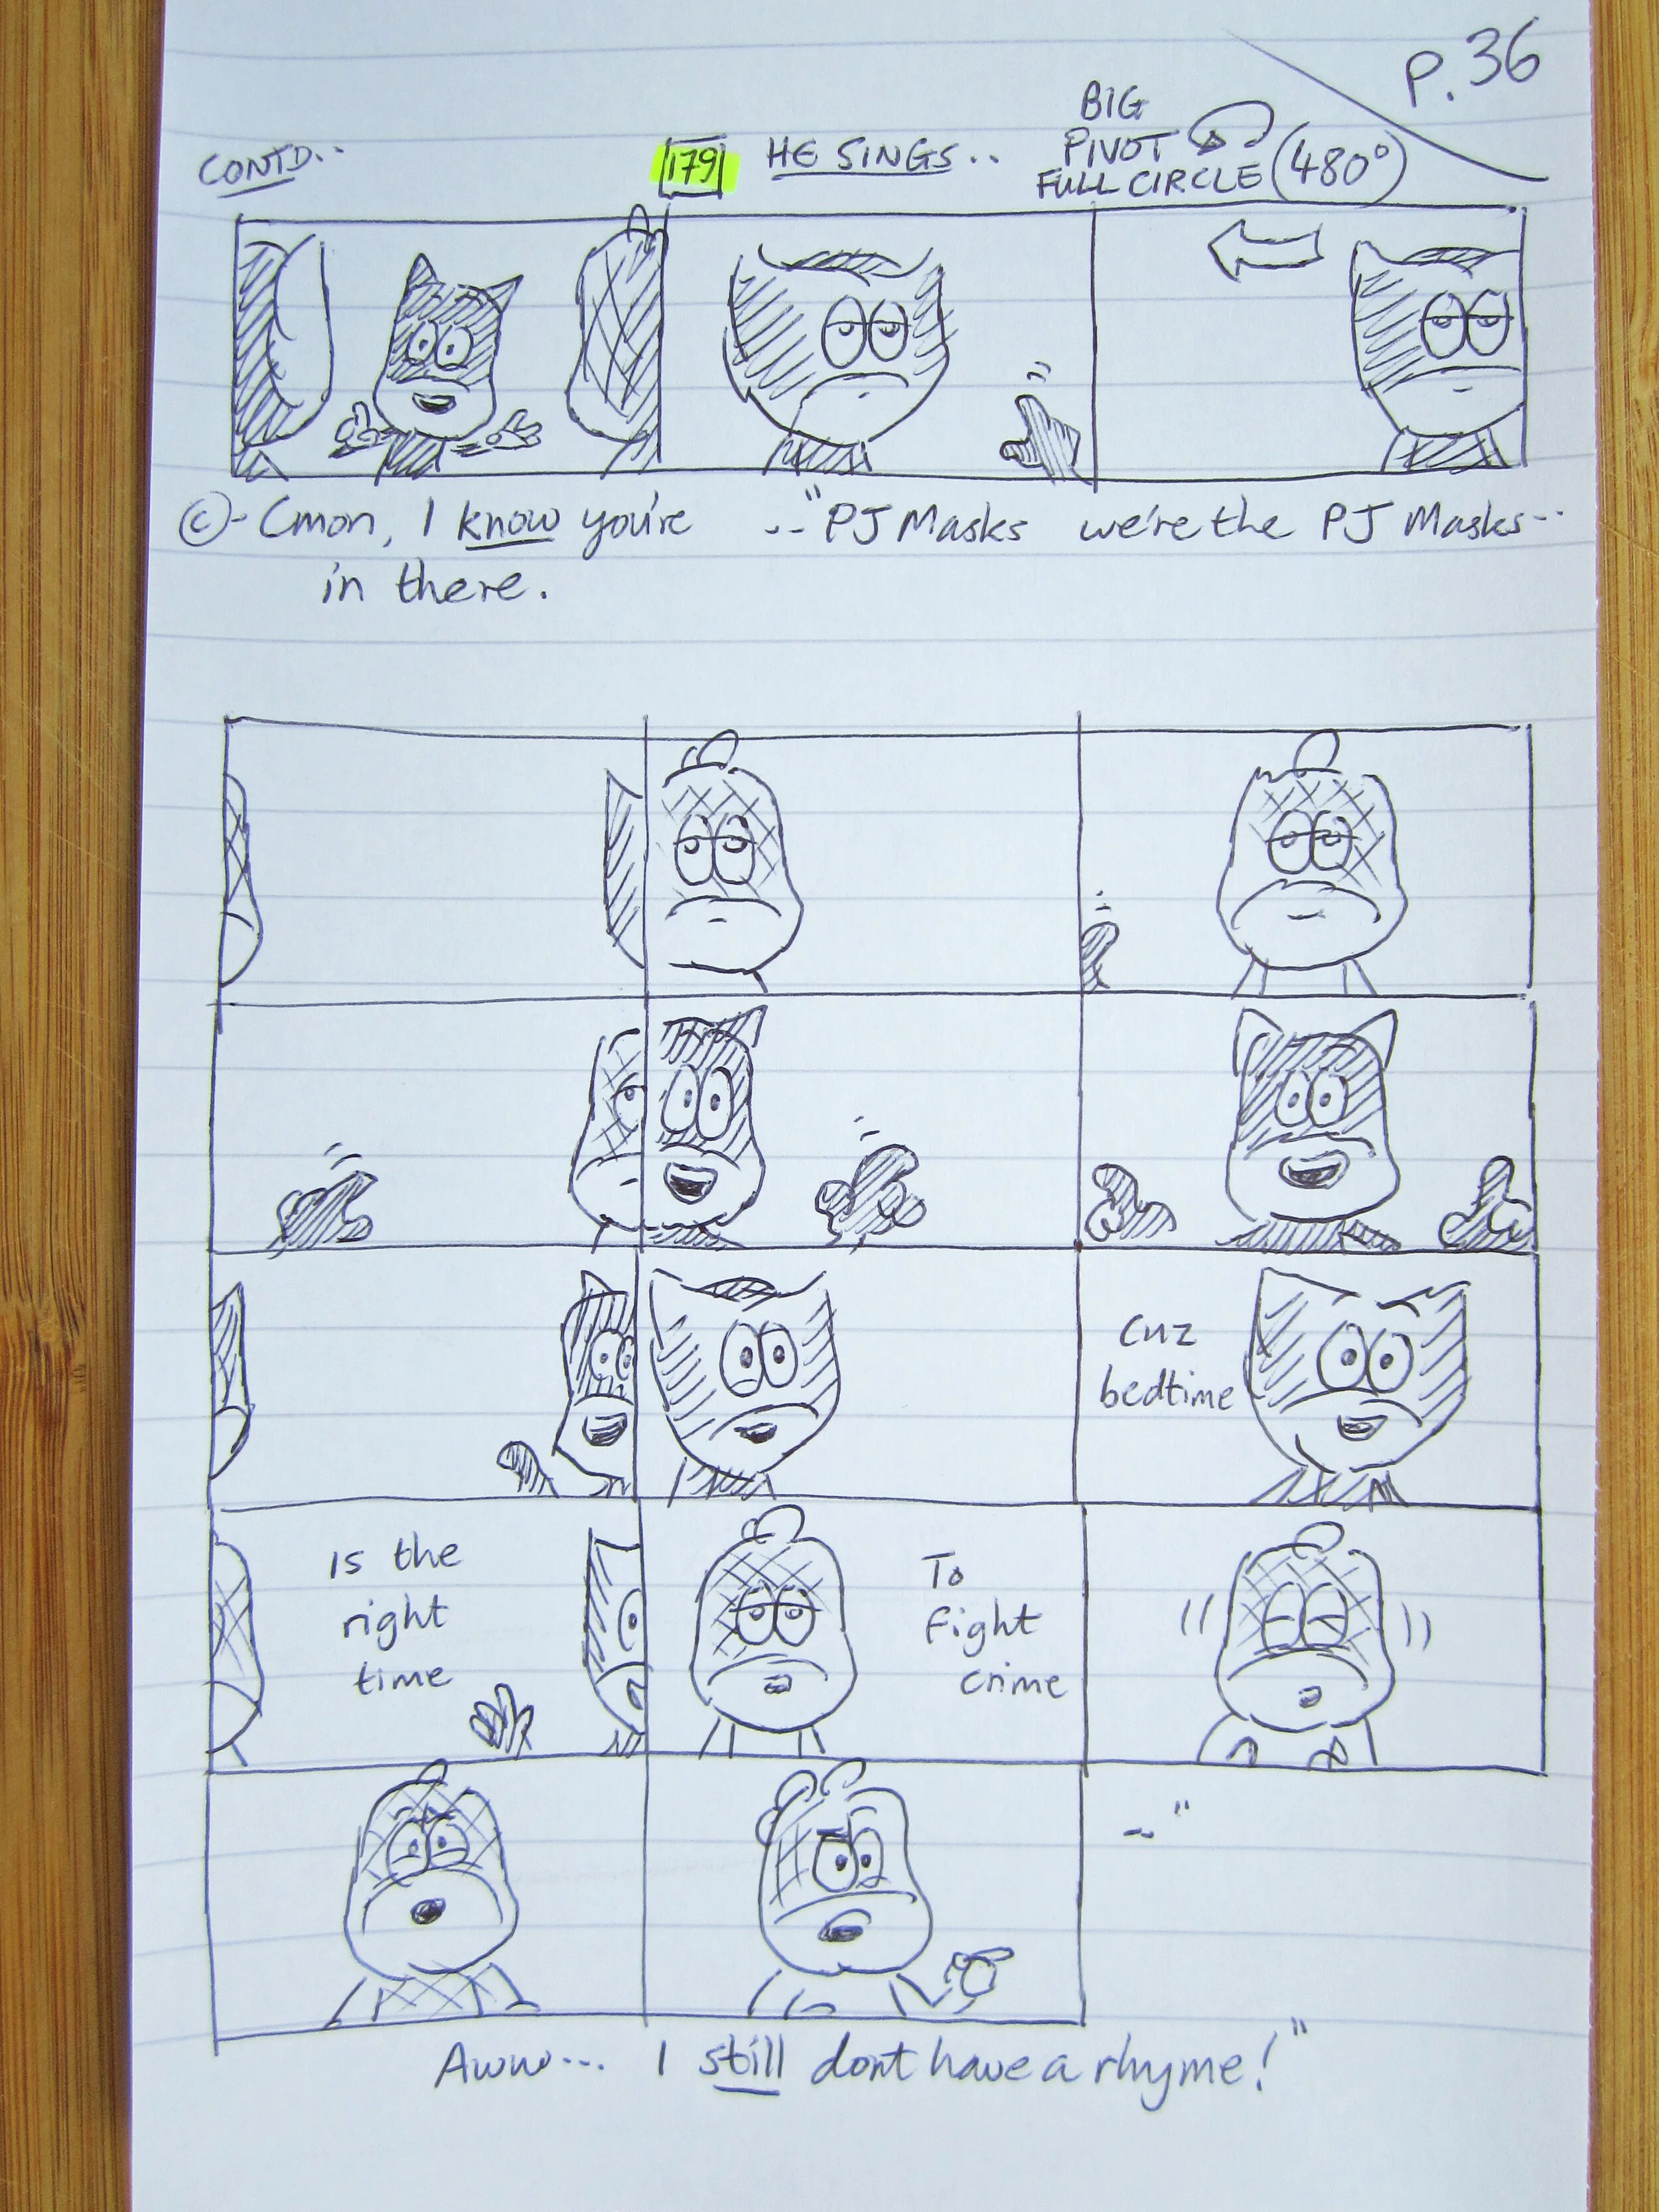 P. 36
CONTD..
179
HE SINGS..
BIG
PIVOT
FULL CIRCLE (480°)
©- Cmon, I know you're
in there.
.."PJ Masks we're the PJ Masks..
Cuz
bedtime
is the
right
time
To
fight
crime
.."
Aww... I still dont have a rhyme!"